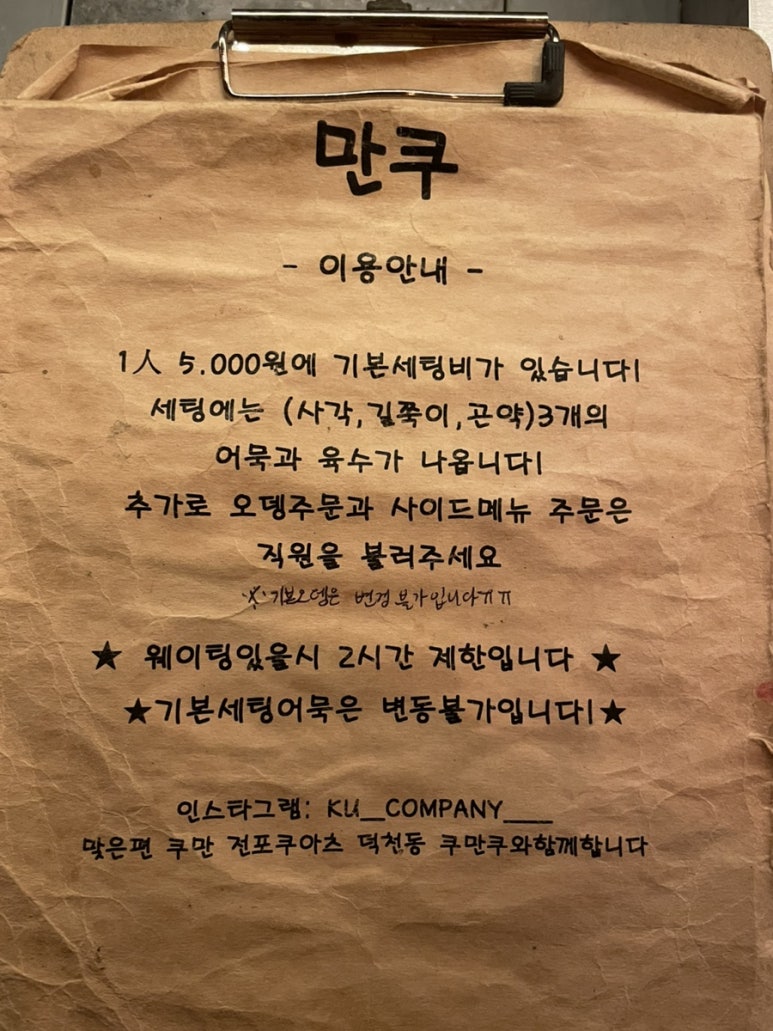 만쿠
- 이용안내 -
1人 5.000원에 기본세팅비가 있습니다!
세팅에는 (사각,길쭉이,곤약)3개의
어묵과 육수가 나옵니다!
추가로 오뎅주문과 사이드메뉴 주문은
직원을 불러주세요
※기본오뎅은 변경 불가입니다ㅠㅠ
★ 웨이팅있을시 2시간 제한입니다 ★
★기본세팅어묵은 변동불가입니다!★
인스타그램: KU__COMPANY___
맞은편 쿠만 전포쿠아츠 덕천동 쿠만쿠와함께합니다